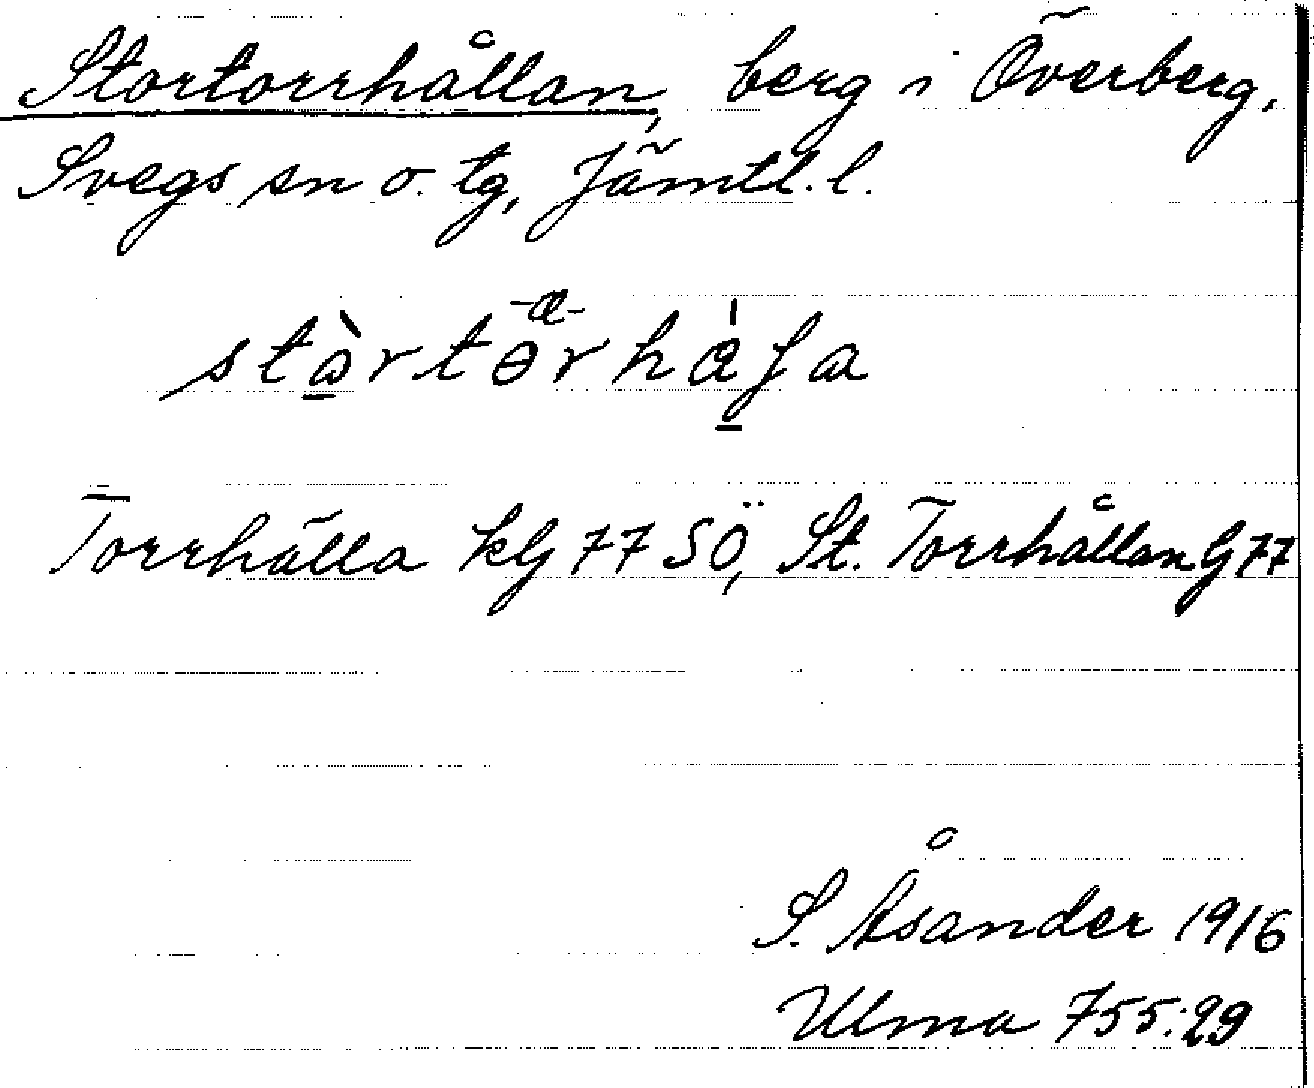 Stortorrhållan, berg i Överberg,
Svegs sn o. tg, Jämtl. l.
Torrhälla kbg 77 SÖ, St. Torrhållan G 77
S. Åsander 1916
Ulma 755:29